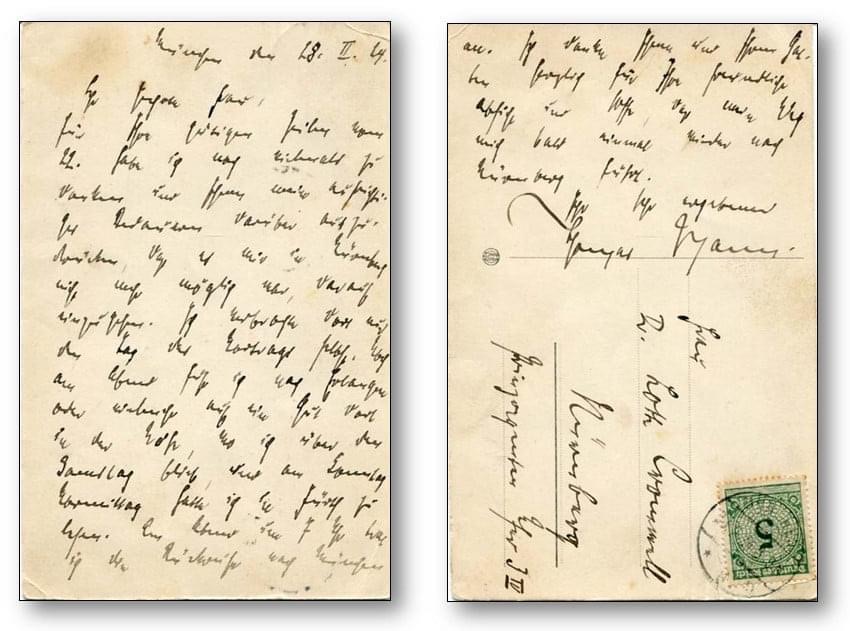 München den 28. II. 24.
Sehr geehrte Frau,
für Ihre gütigen Zeilen vom
22. habe ich noch vielmals zu
danken und Ihnen mein aufrichti-
ges Bedauern darüber auszu-
drücken, daß es mir in Nürnberg
nicht mehr möglich war, darauf
einzugehen. Ich verbrachte dort nur
den Tag des Vortrags selbst. Noch
am Abend fuhr ich nach Erlangen
oder vielmehr auf ein Gut dort
in der Nähe, wo ich über den
Samstag blieb, und am Sonntag
Vormittag hatte ich in Fürth zu
lesen. Am Abend um 7 Uhr trat
ich die Rückreise nach München
an. Ich danke Ihnen und Ihrem Gat-
ten herzlich für Ihre freundliche
Absicht und hoffe, daß mein Weg
mich bald einmal wieder nach
Nürnberg führt.
Ihr sehr ergebener
Thomas Mann.
Frau
Dr. Lotte Cromwell
Nürnberg
5
Deutsches Reich